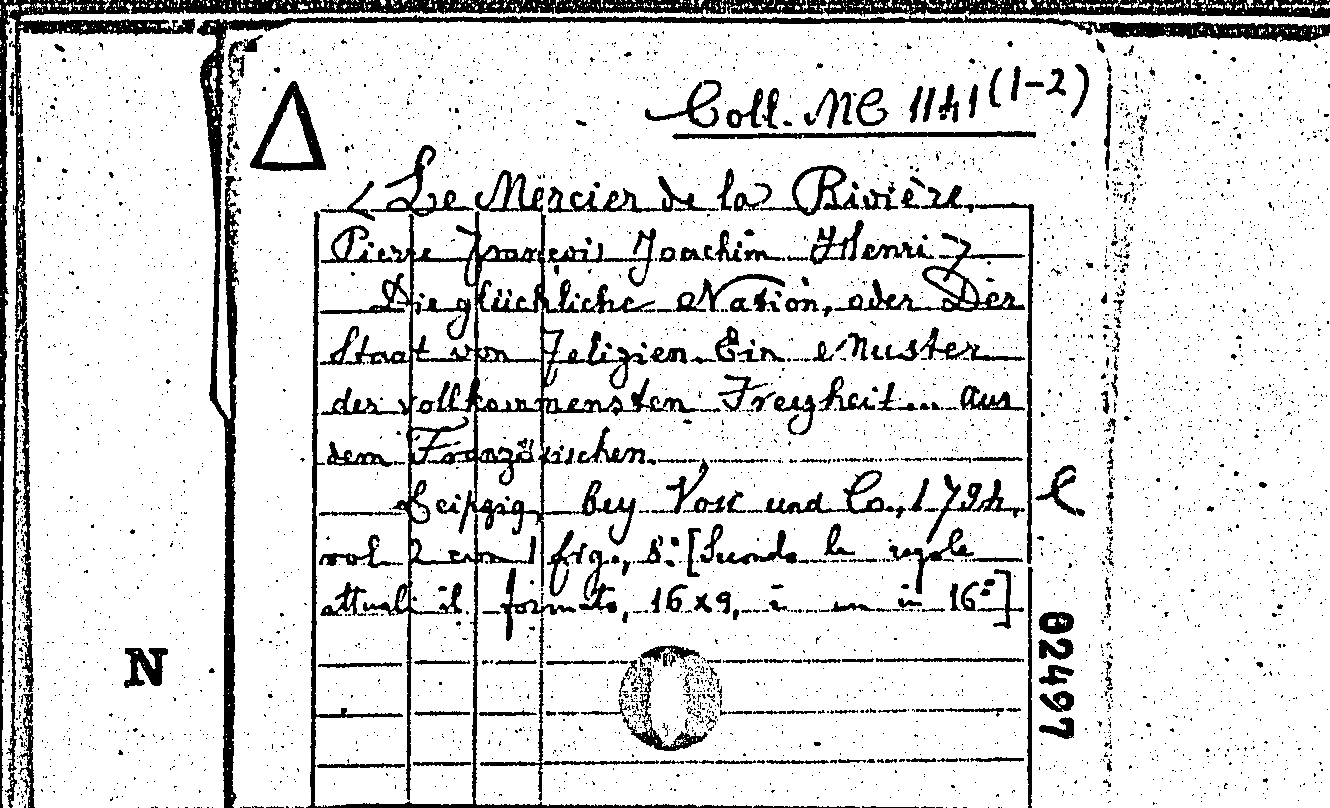 Coll. MC 1141 (1-2)
< Le Mercier de la Rivière,
Pierre François Joachim Henri >
Die glückliche Nation, oder Der
Staat von Felizien. Ein Muster
der vollkommensten Freyheit... aus
dem Französischen.
Leipzig, bey Voss und Co., 1794.
C
vol 2 con 1 frg., 8.° [Secondo le regole
attuali il formato, 16x9, è un in 16°]
N
02497